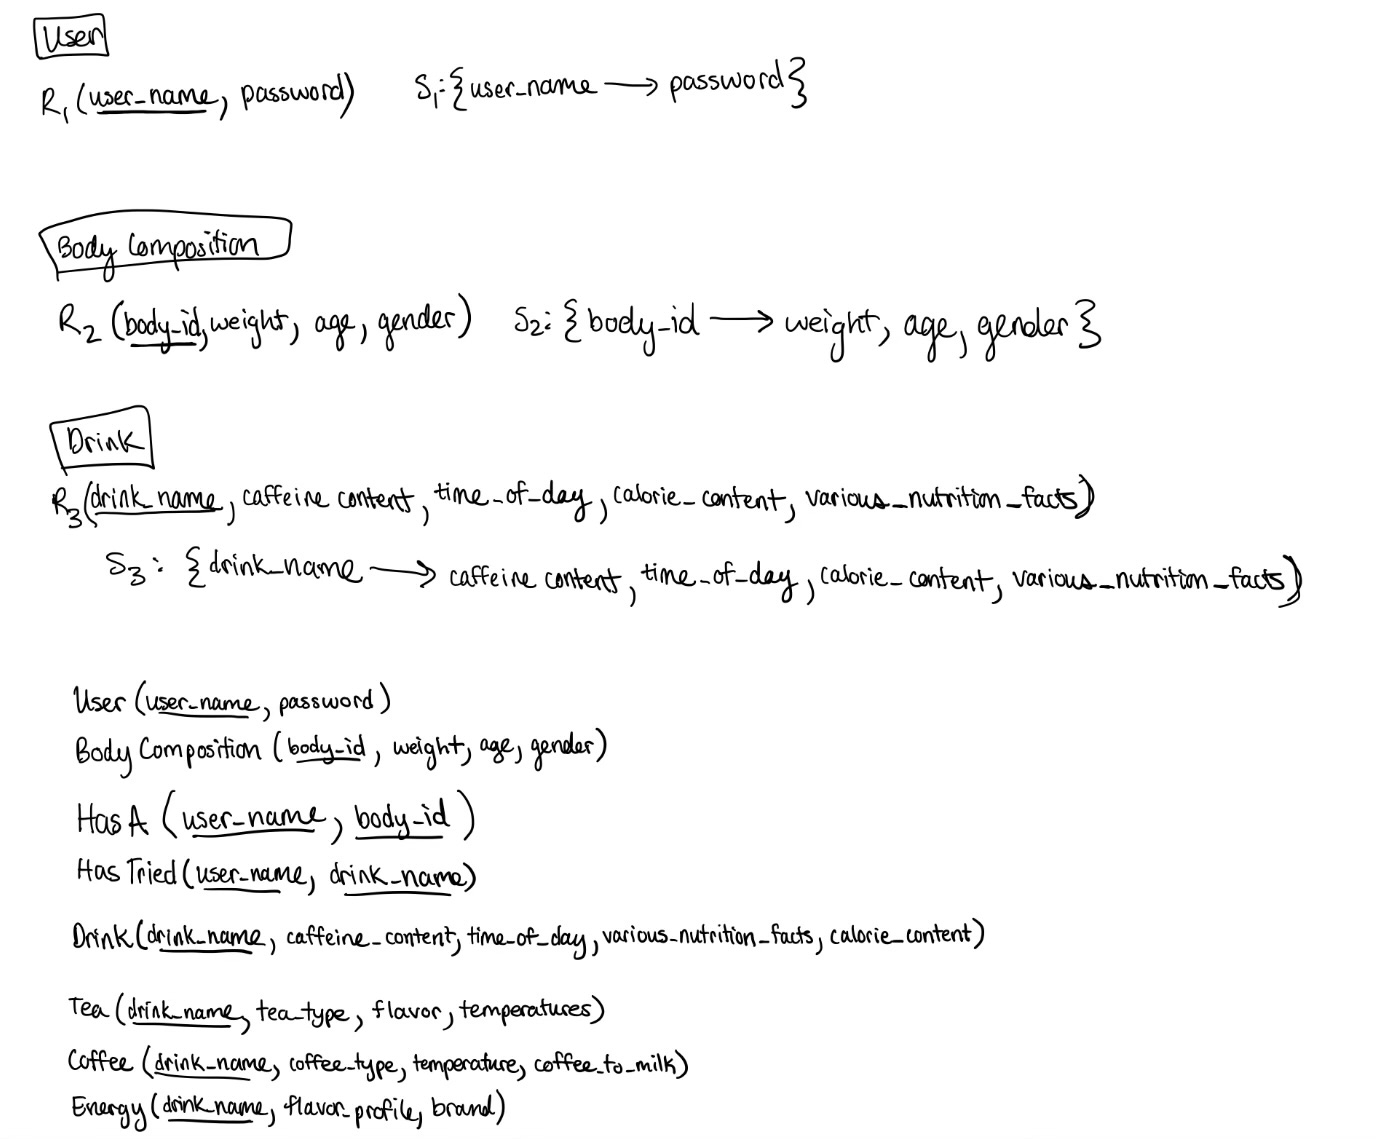 User
R1 (user_name, password) S1: {user_name → password}
Body Composition
R2 (body_id, weight, age, gender) S2: {body_id → weight, age, gender}
Drink
R3 (drink_name, caffeine content, time_of_day, calorie_content, various_nutrition_facts)
S3: {drink_name → caffeine content, time_of_day, calorie_content, various_nutrition_facts)
User (user_name, password)
Body Composition (body_id, weight, age, gender)
Has A (user_name, body_id)
Has Tried (user_name, drink_name)
Drink (drink_name, caffeine_content, time_of_day, various_nutrition_facts, calorie_content)
Tea (drink_name, tea_type, flavor, temperatures)
Coffee (drink_name, coffee_type, temperature, coffee_to_milk)
Energy (drink_name, flavor_profile, brand)